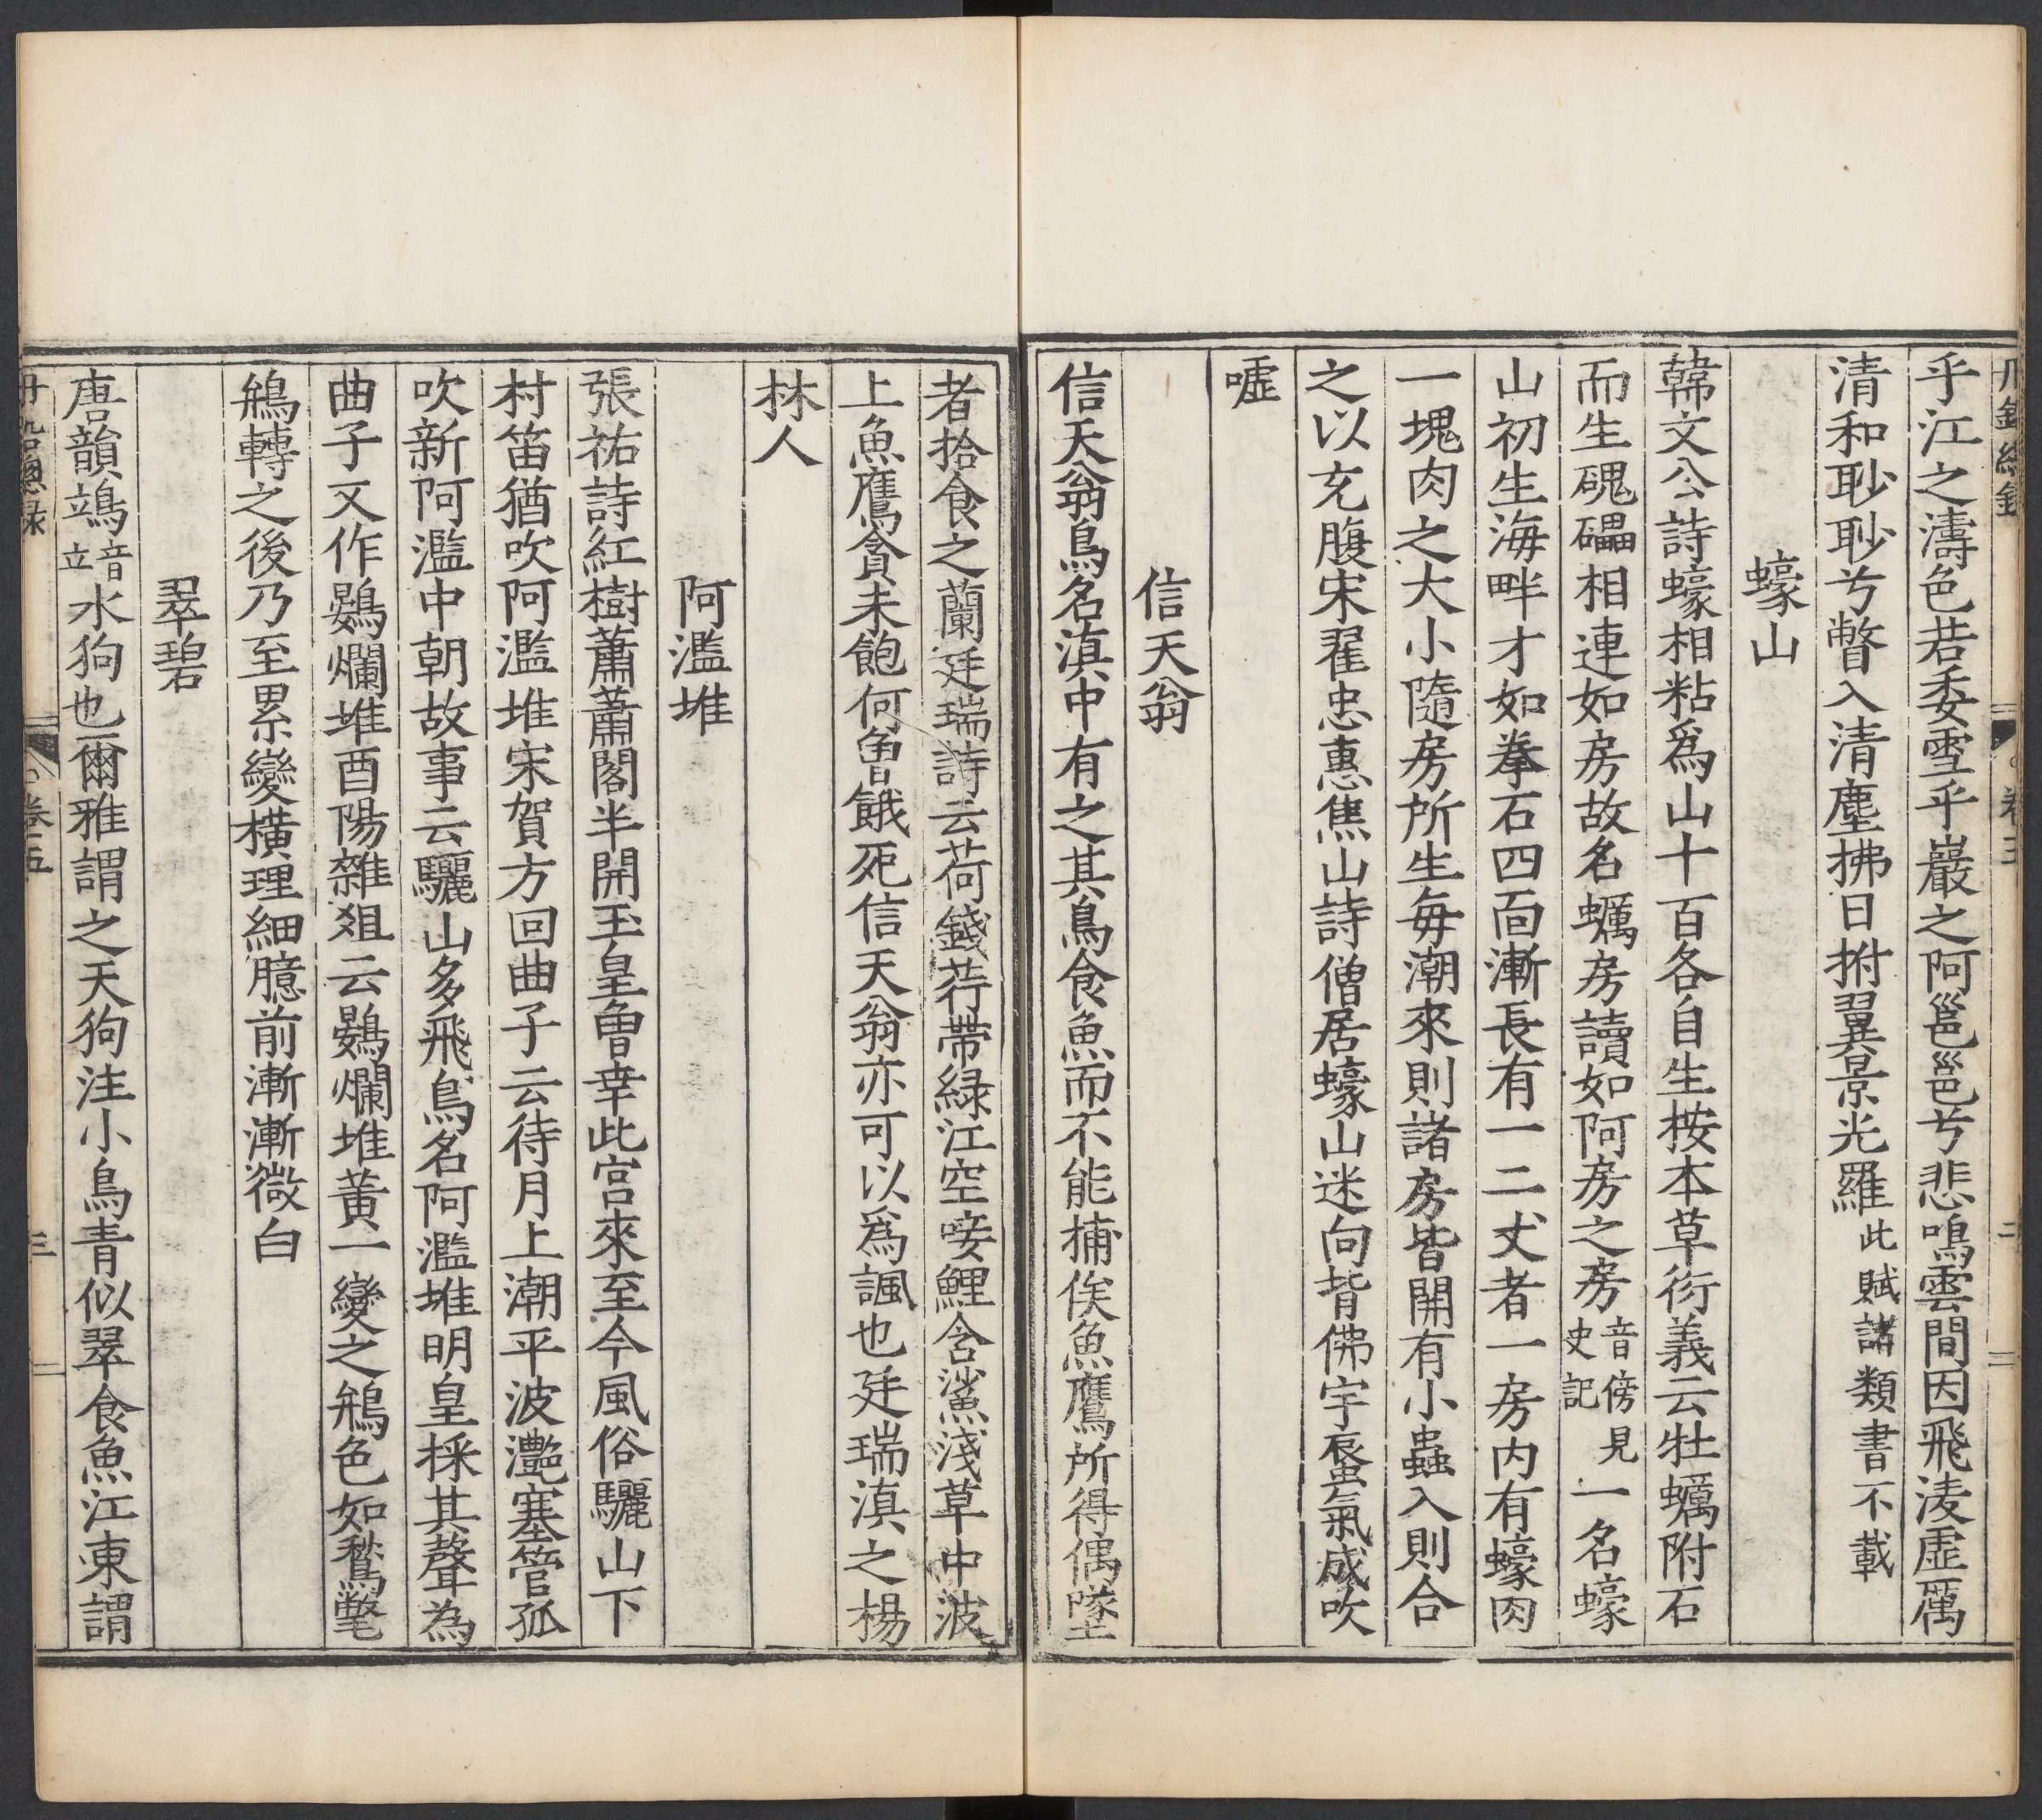 乎江之濤色若委雪乎巖之阿邕邕兮悲鳴雲間因飛淩虛厲
清和耖耖兮瞥入清塵拂日拊翼景光羅此賦諸類書不載
蠔山
韓文公詩蠔相粘爲山十百各自生按本草衍義云牡蠣附石
而生磈礧相連如房故名蠣房讀如阿房之房音傍見史記一名蠔
山初生海畔才如拳石四面漸長有一二丈者一房内有蠔肉
一塊肉之大小隨房所生每潮來則諸房皆開有小蟲入則合
之以充腹宋翟忠惠焦山詩僧居蠔山迷向背佛宇蜃氣成吹
嘘
信天翁
信天翁鳥名滇中有之其鳥食魚而不能捕俟魚鷹所得偶墜
者拾食之蘭廷瑞詩云荷錢荇帶緑江空唼鯉含鯊淺草中波
上魚鷹貪未飽何曾餓死信天翁亦可以爲諷也廷瑞滇之楊
林人
阿濫堆
張祜詩紅樹蕭蕭閣半開玉皇曾幸此宫來至今風俗驪山下
村笛猶吹阿濫堆宋賀方回曲子云待月上潮平波灔塞管孤
吹新阿濫中朝故事云驪山多飛鳥名阿濫堆明皇採其聲為
曲子又作鷃爛堆酉陽雜爼云鷃爛堆黃一變之鴘色如鶖氅
鴘轉之後乃至累變横理細臆前漸漸微白
翠碧
唐韻鴗音立水狗也爾雅謂之天狗注小鳥青似翠食魚江東謂
丹鉛總録
卷五
三